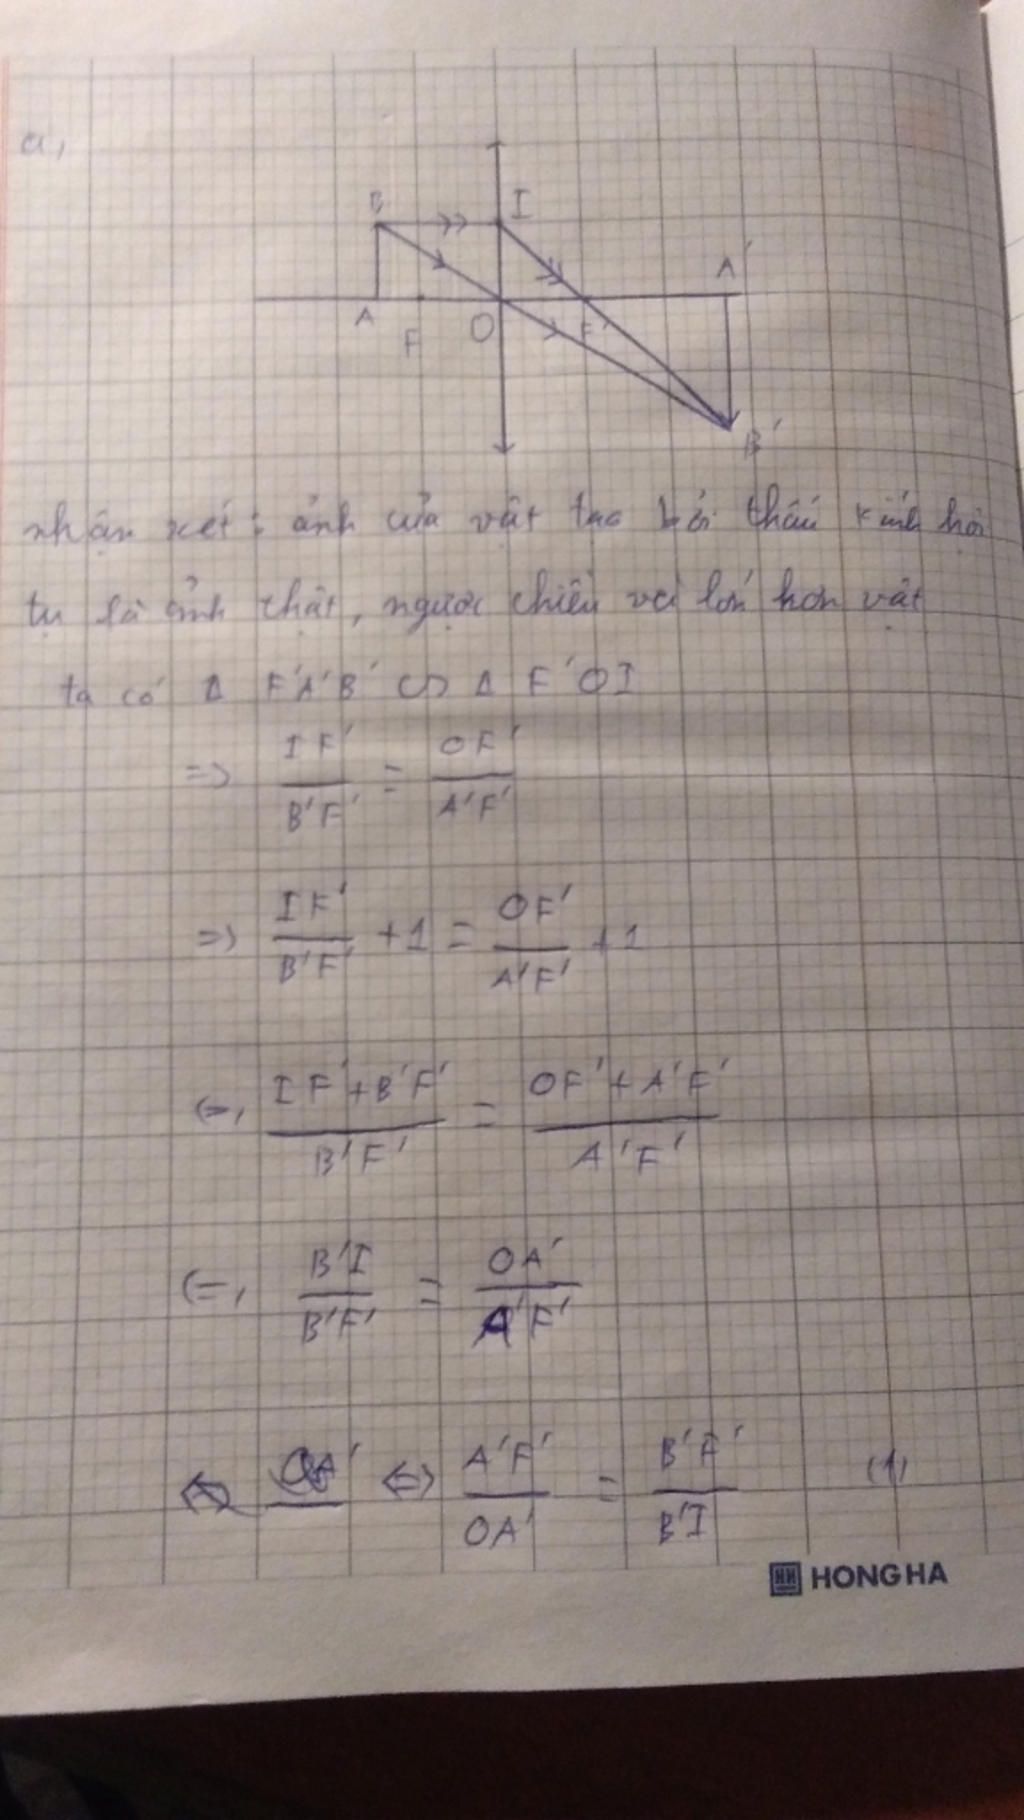 a,
B
I
A'
A
F
O
F'
B'
nhận xét: ảnh của vật tạo bởi thấu kính hội
tụ là ảnh thật, ngược chiều và lớn hơn vật
ta có Δ F'A'B' ∽ Δ F'OI
=> IF'/B'F' = OF'/A'F'
=> IF'/B'F' + 1 = OF'/A'F' + 1
<=> (IF' + B'F')/B'F' = (OF' + A'F')/A'F'
<=> B'I/B'F' = OA'/A'F'
<=> A'F'/OA' = B'F'/B'I (1)
HONG HA